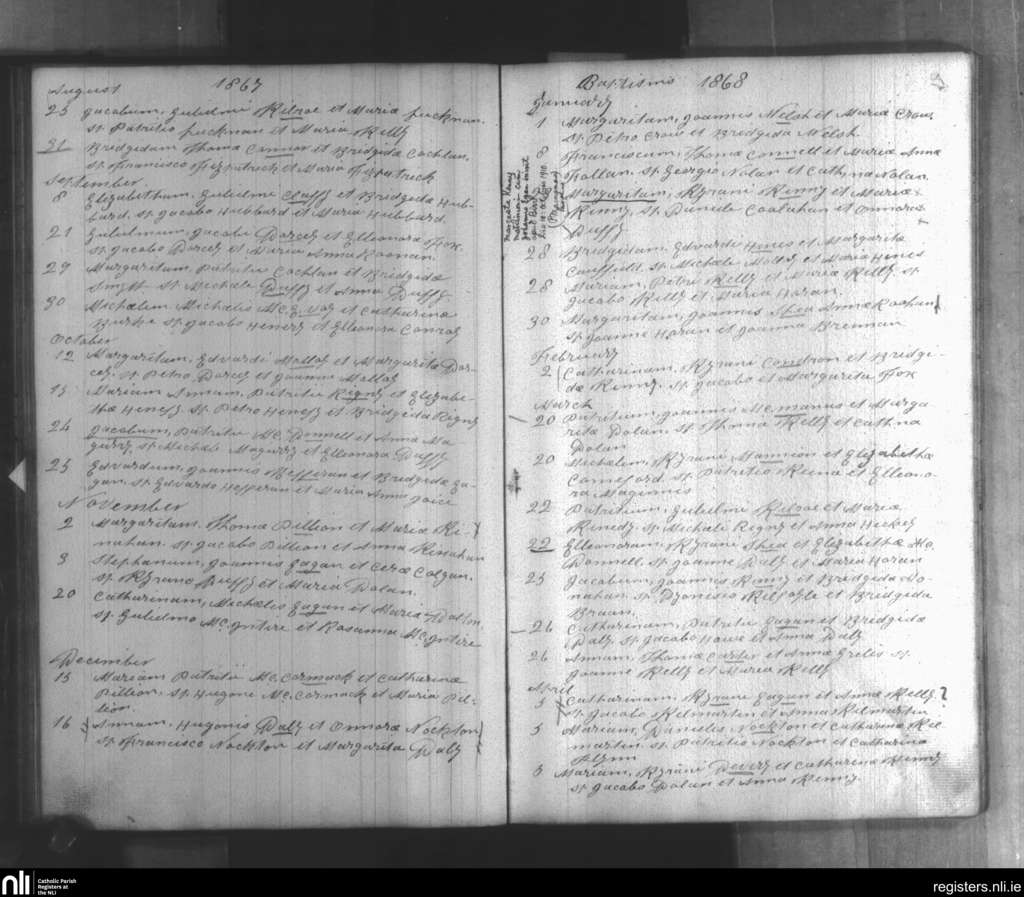 August 1867
25 Jacobum, Gulielmi Kilroe et Maria Luckman.
sp. Patritio Luckman et Maria Kelly
31 Bridgidam Thoma Connor et Bridgida Coghlan,
sp. Francisco Fitzpatrick et Maria Fitzpatrick
September
8 Elizabetham, Gulielmi Duffy et Bridgida Hub-
bard, sp. Jacobo Hubbard et Maria Hubbard.
21 Gulielmum, Jacobi Darcey et Elleonora Fox
sp. Jacobo Darcey et Maria Anna Noonan.
29 Margaritam, Patritii Coghlan et Bridgidæ
sp. Michale Duffy et Anna Duffy
30 Michælem Michalis et Catharina
Burke sp. Jacobo Henery et Elleonora Conroy
October
12 Margaritam, Edvardi Molloy et Margaritæ Dar-
cey, sp. Petro Darcey et Joanna Molloy
15 Mariam Annam, Patritii Rigney et Elizabe-
tha Henesy sp. Petro Henesy et Bridgida Rigny
24 Jacobum, Patritii Mc Donnell et Anna Ma-
guiry, sp. Michale Maguiry et Elleonora Duffy
25 Edvardum, Joannis Hesseran et Bridgida Ea-
gan, sp. Edvardo Hesperan et Maria Anna Joice
November
2 Margaritam, Thomæ Dillion et Maria Ki-
nahan. sp. Jacobo Dillion et Anna Kinahan
3 Stephanum, Joannis Eagan et Colgan.
sp. Kyrano Duffy et Maria Dolan.
20 Catharinam, Michælis Eagan et Maria Dalton,
sp. Gulielmo Mc Intire et Rosanna Mc Intire
December
15 Mariam Patritii Mc Cormack et Catharina
Dillion, sp. Hugone Mc Cormack et Maria Dil-
lion.
16 Annam, Hugonis Daly et Onnoræ Nockton
sp. Francisco Nockton et Margarita Daly
Baptisms 1868
January
1 Margaritam, Joannis Welsh et Maria Crow,
sp. Petro Crow et Bridgida Welsh.
8 Franciscum, Thomæ Connell et Maria Anna
Fallan. sp. Georgio Nolan et Cathna Nolan.
Margaritam, Kyrani Kenny et Mariæ
Kenny, sp. Daniele Coolahan et Onnora
Duffy
Margarita Kenny
matrimonium cum
28 Bridgitam, Edvardi Hines et Margarita
sp. Michæle Molloy et Maria Hines
28 Mariam, Petri Kelly et Maria Kelly, sp.
Jacobo Kelly et Maria Horan.
30 Margaritam, Joannis Shea Anna Roohan
sp. Joanne Horan et Joanna Brennan
February
2 Catharinam, Kyrani Condron et Bridgi-
dæ Kenny. sp. Jacobo et Margarita Fox
March
20 Patritium, Joannis Mc manus et Marga-
rita Dolan, sp. Thoma Kelly et Cathna
Dolan
20 Michælem, Kyrani Mannion et Elizabethæ
Comeford. sp. Patritio Keina et Elleono-
ra Maginnis
22 Patritium, Gulielmi Kilroe et Mariæ
Kinedy, sp. Michæle Rigny et Anna Hickey
22 Elleonoram, Kyrani Shea et Elizabethæ Mc
Donnell. sp. Joanne Daly et Maria Horan
25 Jacobum, Joannis Kenny et Bridgida Do-
nahan. sp. Dyonisio Kilfoyle et Bridgida
Braan.
26 Catharinam, Patritii Eagan et Bridgidæ
Daly, sp. Jacobo Howe et Anna Daly
26 Annam, Thomæ Carter et Anna sp.
Joanne Kelly et Maria Kelly
April
5 Catharinam, Kyrani Eagan et Annæ Kelly
sp. Jacobo Kilmartin et Anna Kilmartin
5 Mariam, Danielis Nockton et Catharina Kil-
martin. sp. Patritio Nockton et Catharina
Flynn
5 Mariam, Kyrani Devery et Catharina Kenny
sp. Jacobo Dolan et Anna Kenny.
nli
Catholic Parish
Registers at
the NLI
registers.nli.ie